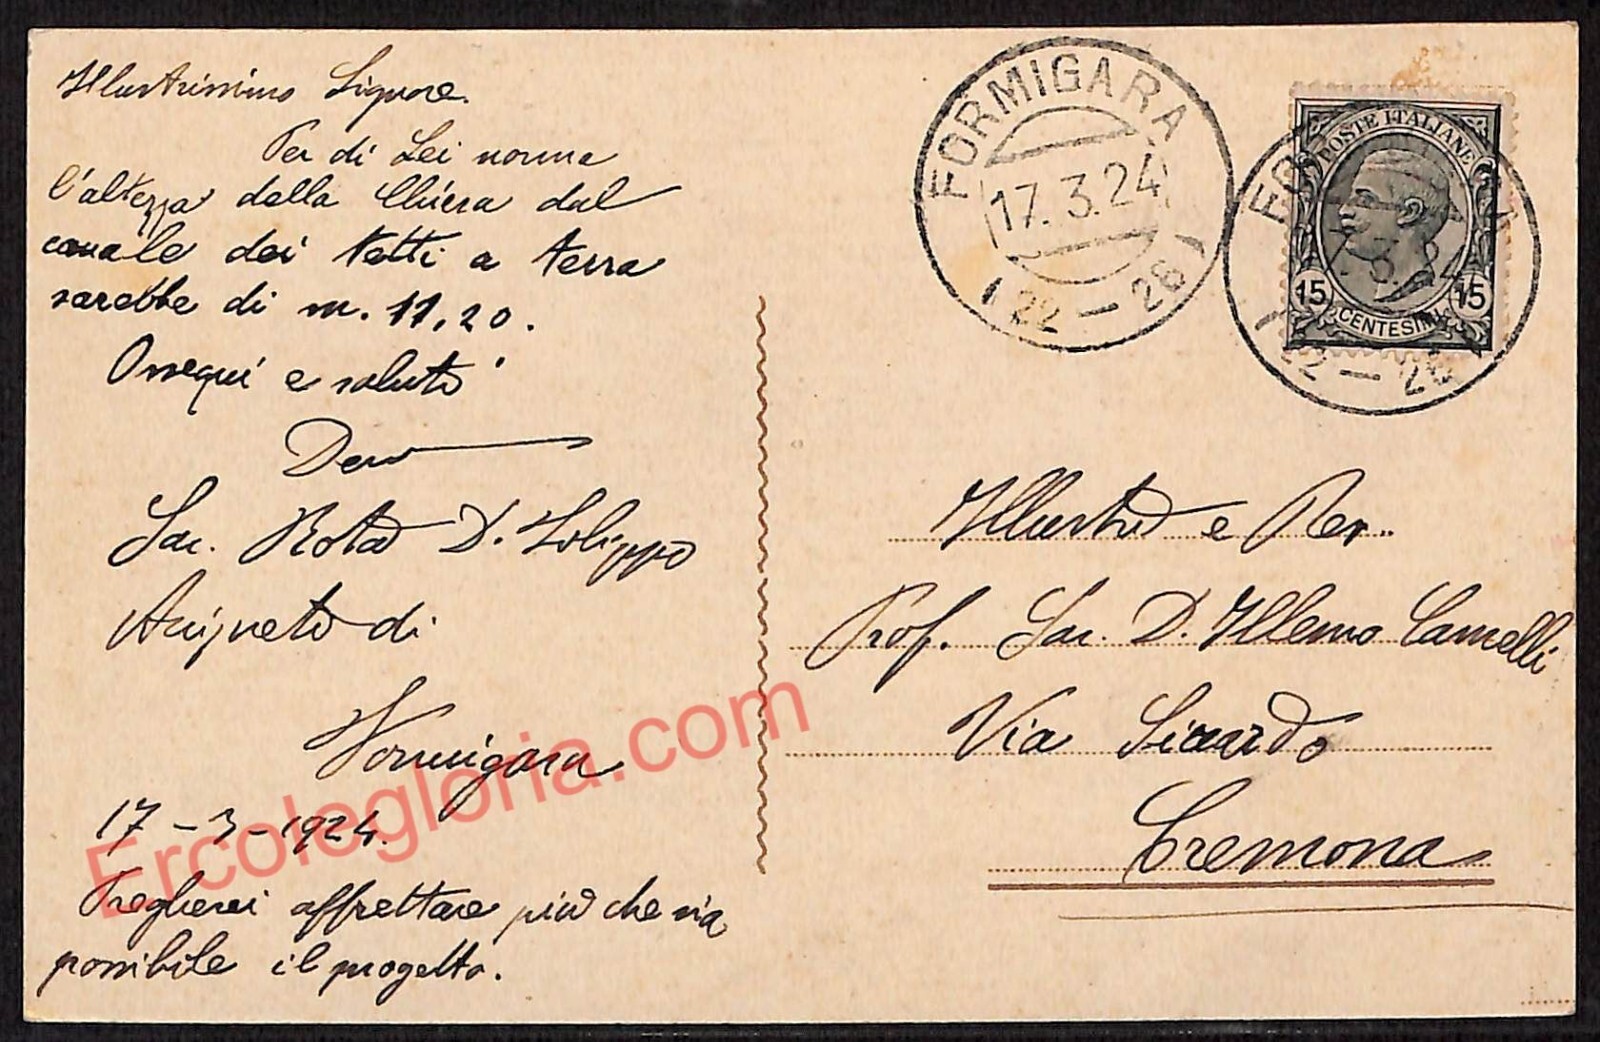 Illustrissimo Signore.
Per di Lei norma
l'altezza della Chiesa dal
canale dei tetti a terra
sarebbe di m. 11,20.
Ossequi e saluti
Dev
Sac. Rota D. Filippo
Formigara
17-3-1924.
Pregherei affrettare più che sia
possibile il progetto.
FORMIGARA
17.3.24
22-26
POSTE ITALIANE
15 15
CENTESIMI
Illustre e Rev.
Prof. Sac. D. Illemo Camelli
Via Sicardo
Cremona
Ercolegloria.com